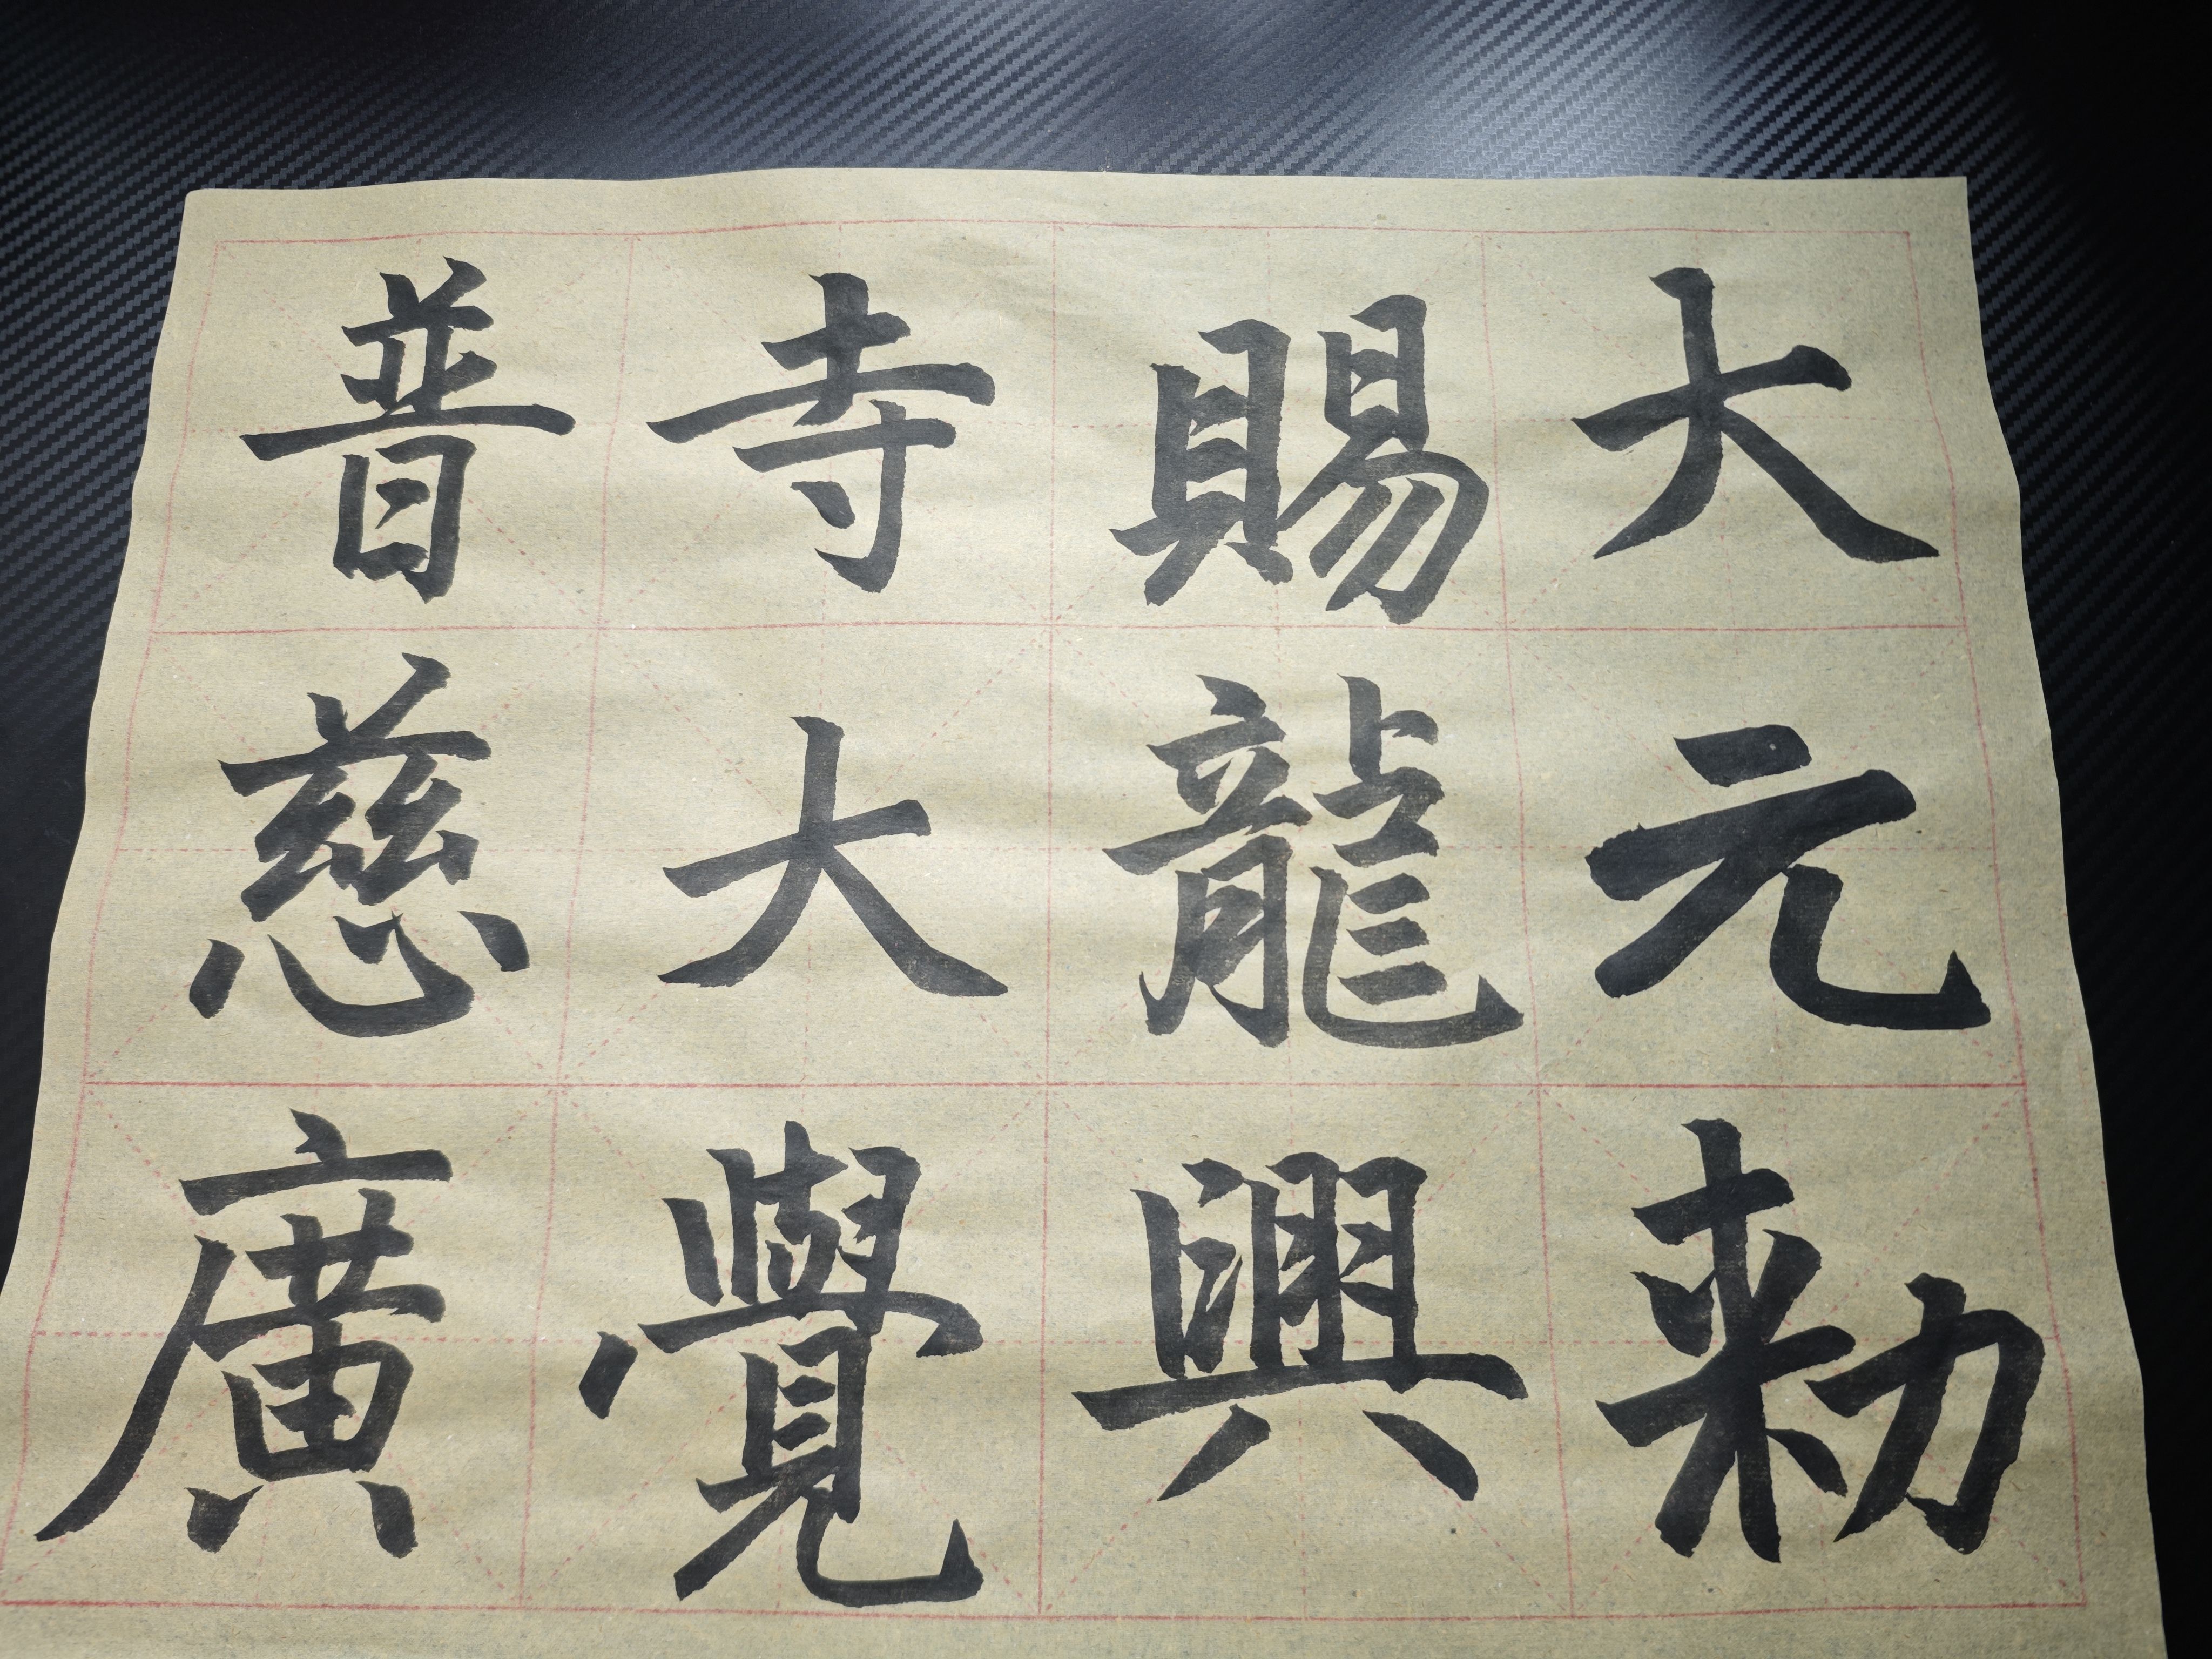 大元勑
賜龍興
寺大覺
普慈廣